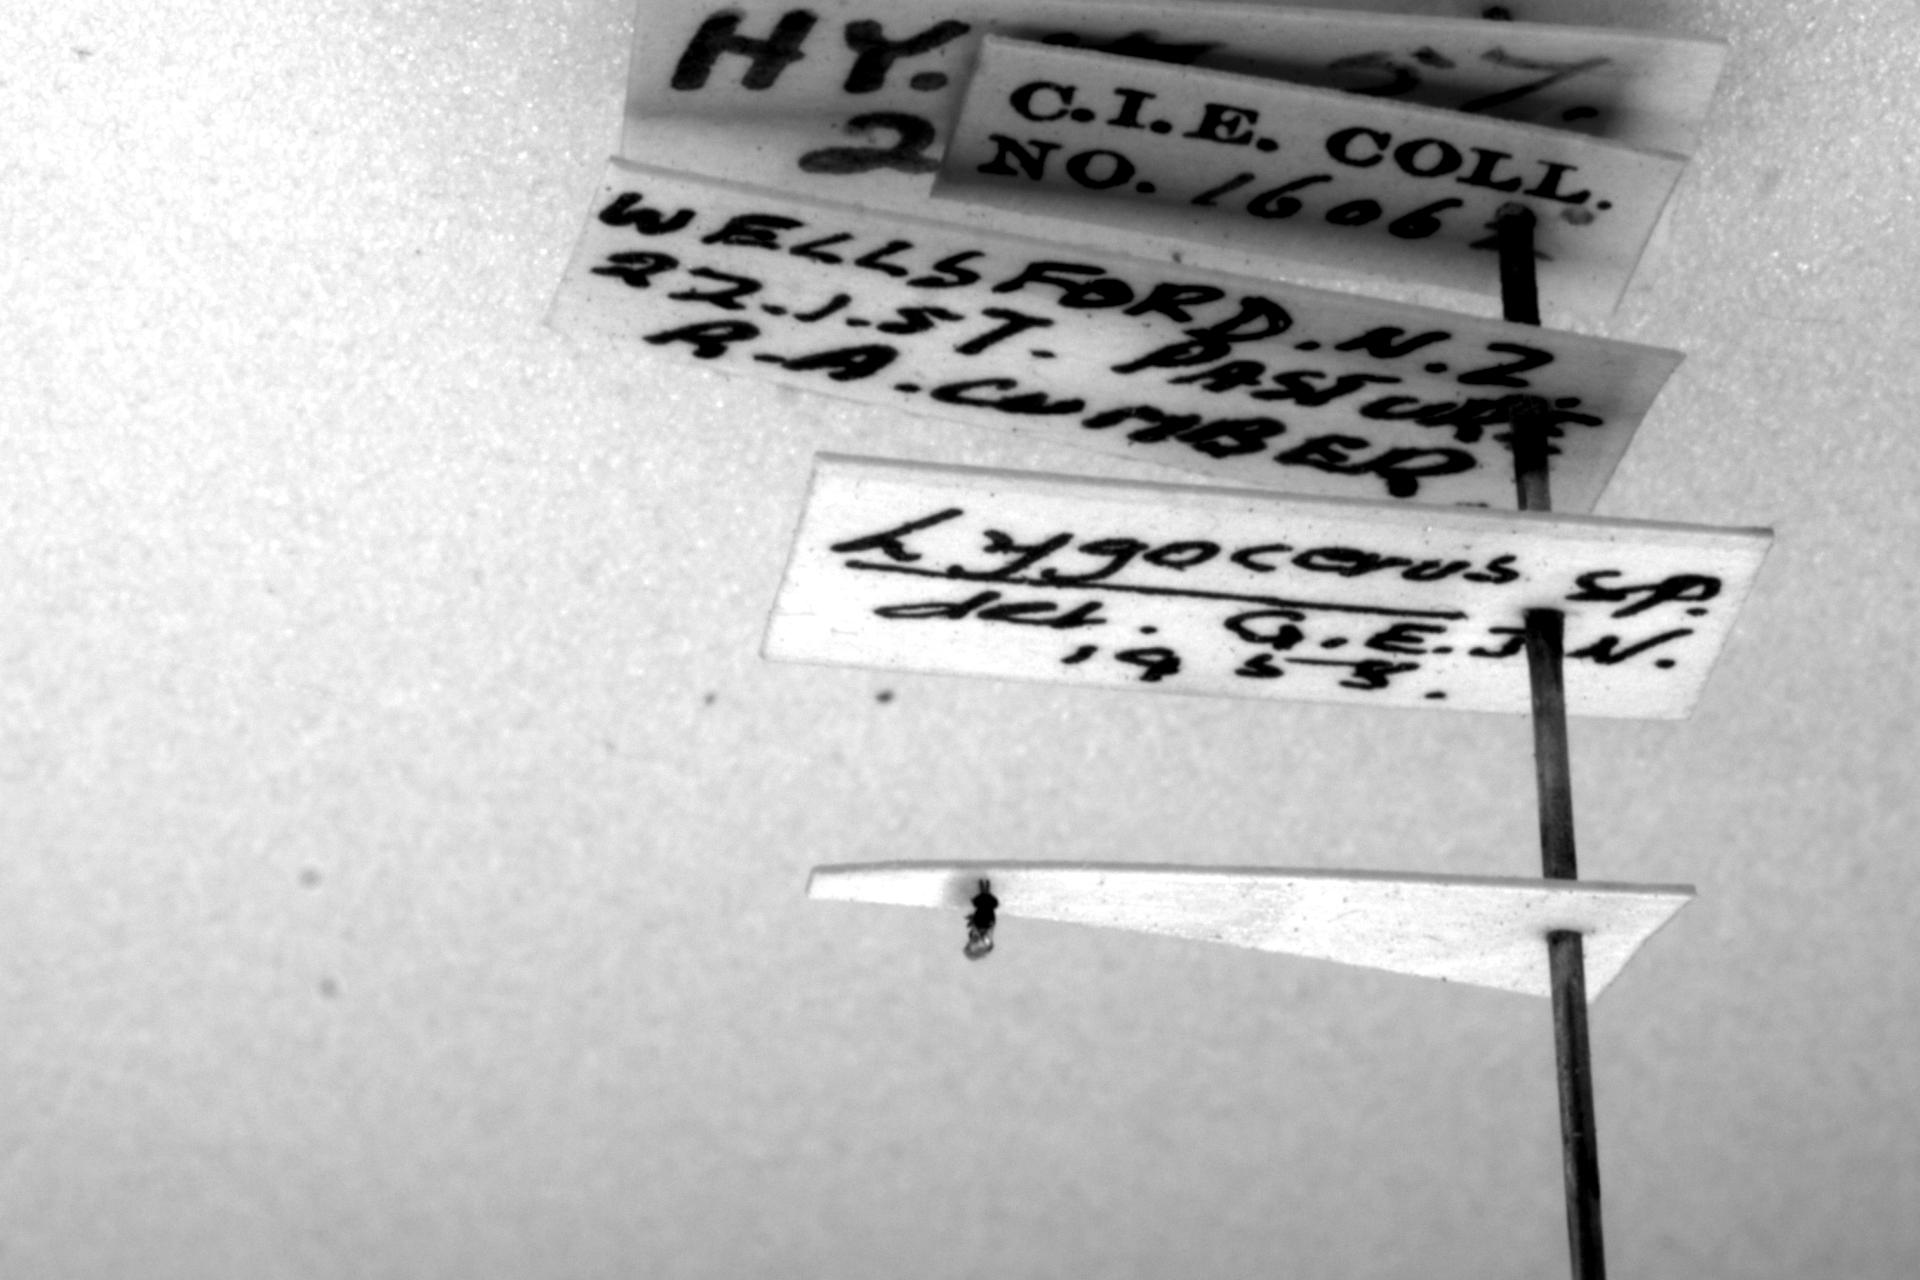 HY. 57.
2
C.I.E. COLL.
NO. 1606
WELLSFORD. N.Z.
27.1.57. PASTURE
R.A. CUMBER
Lygocerus sp.
det. G.E.J.N.
1958.